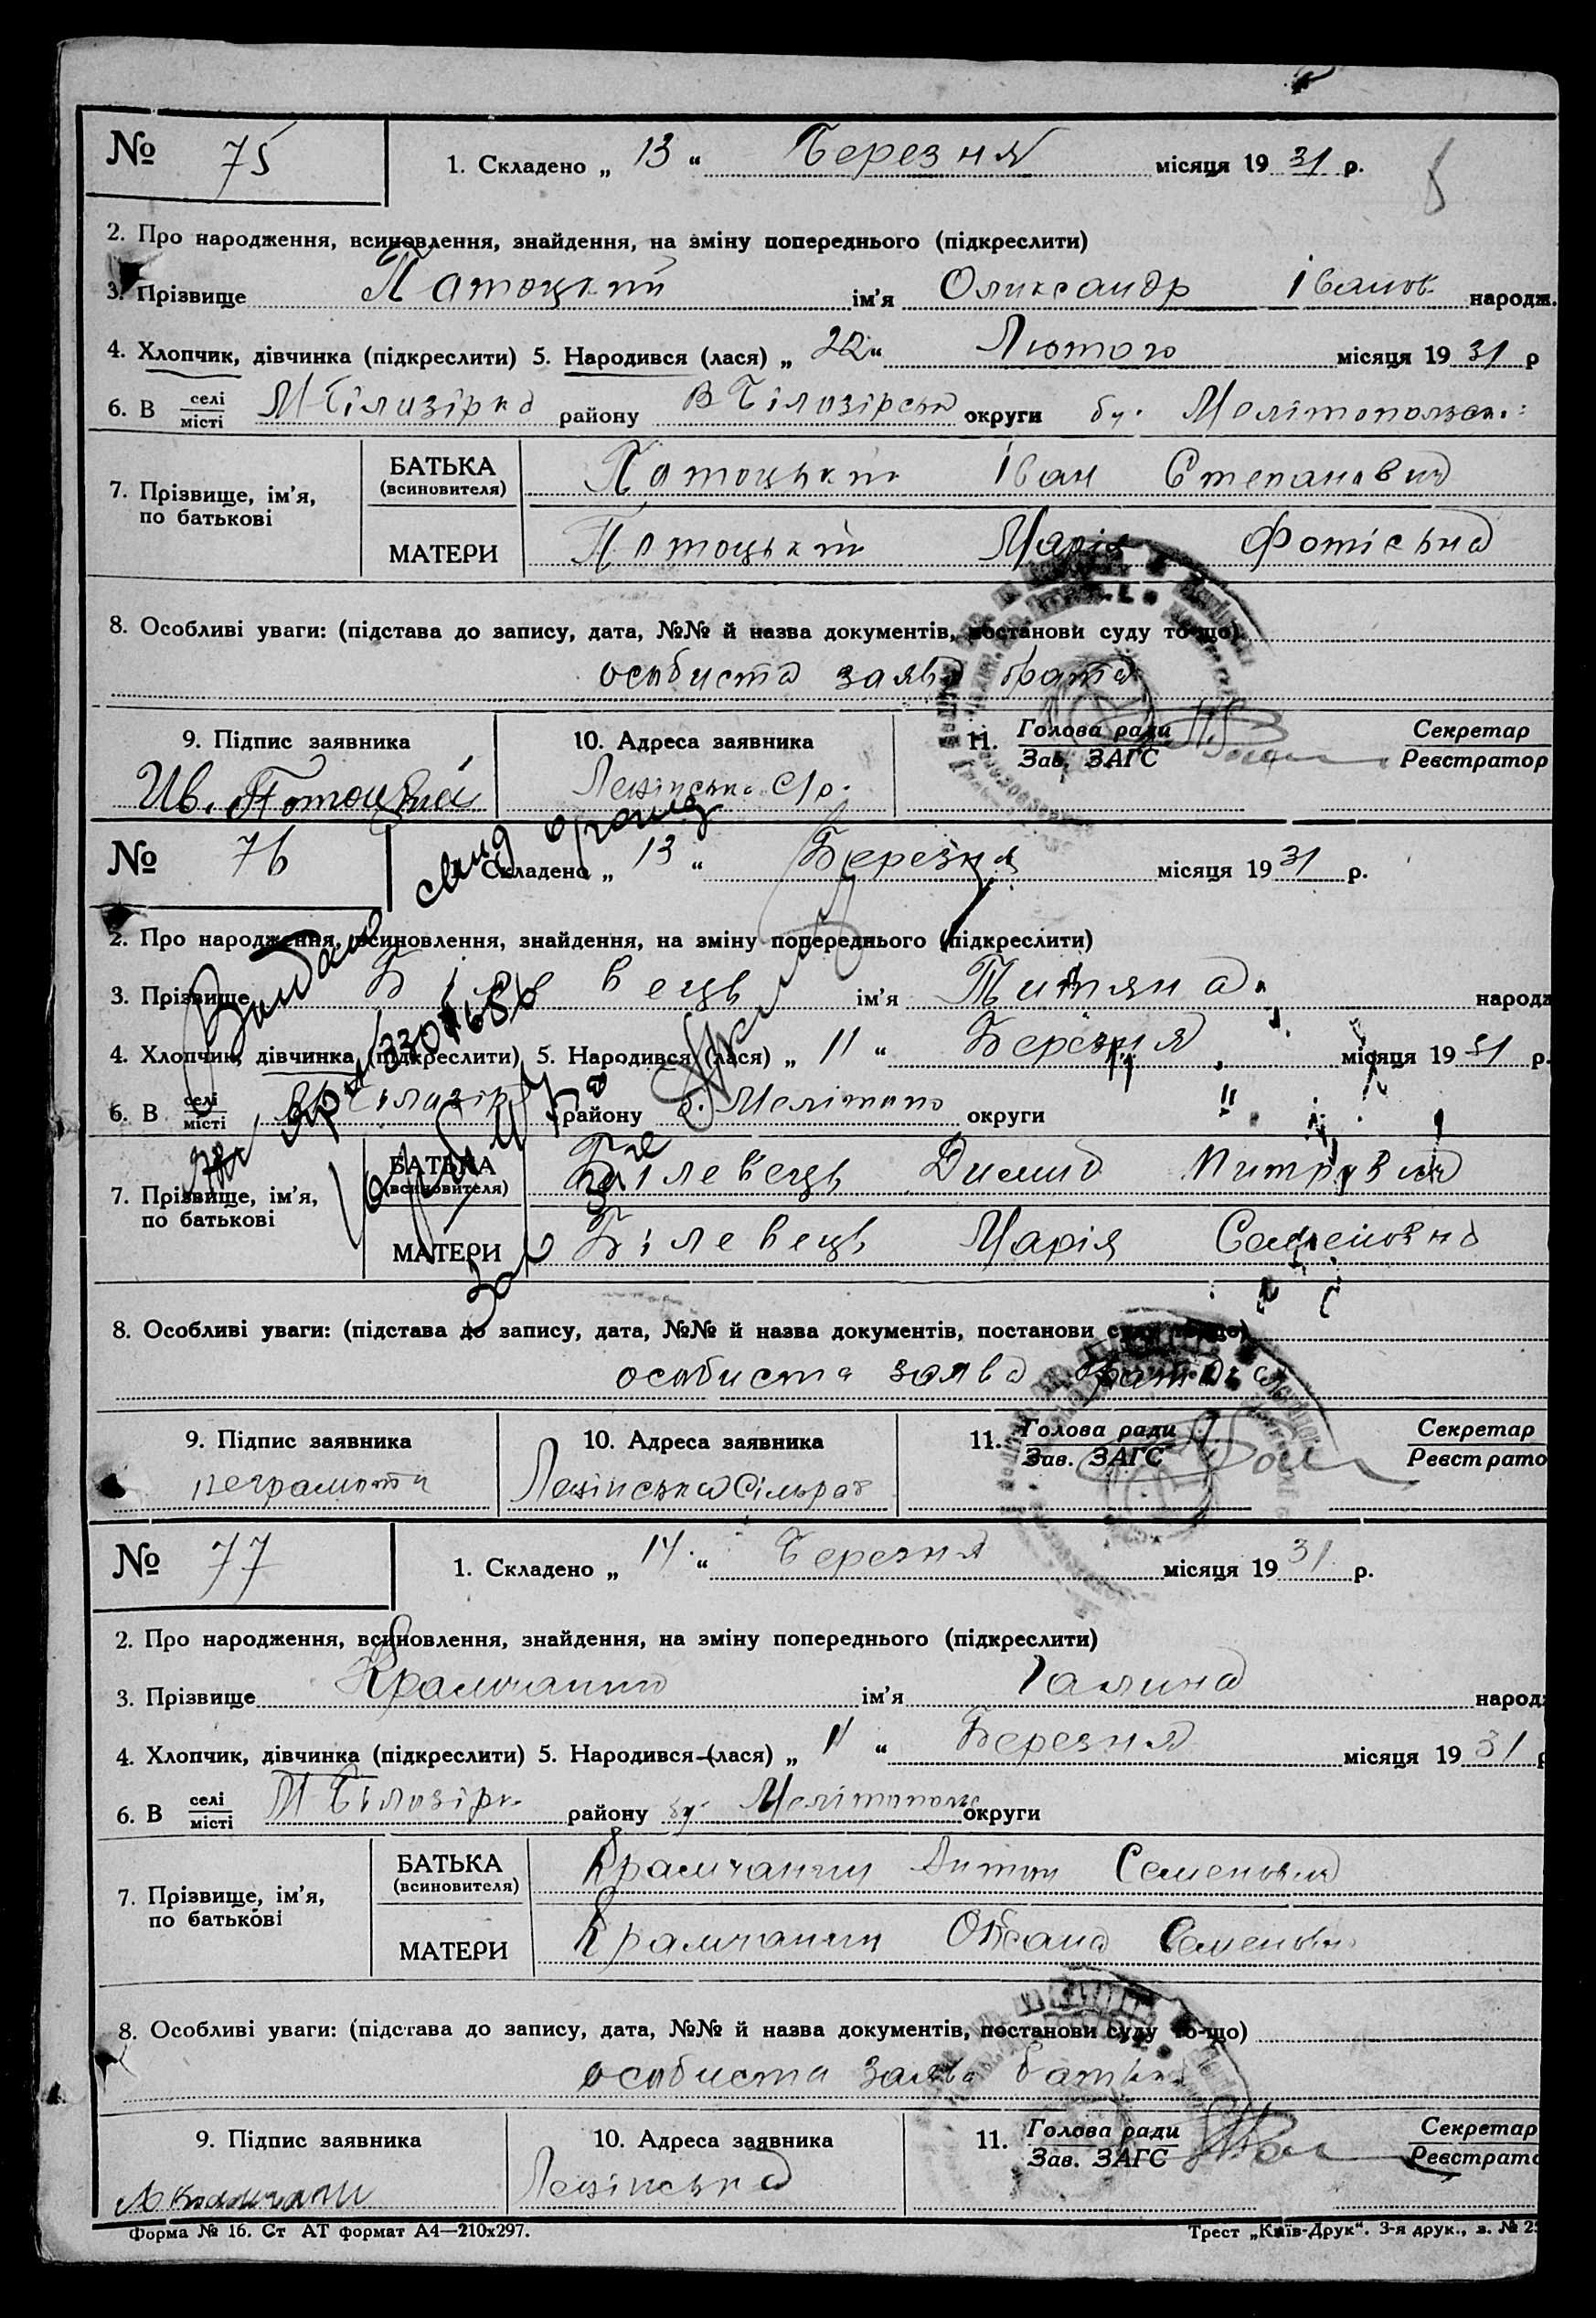 № 75 1. Складено „ 13 “ Березня місяця 19 31 р.
2. Про народження, всиновлення, знайдення, на зміну попереднього (підкреслити)
3. Прізвище Патоцкий ім'я Олександр Іванов. народж.
4. Хлопчик, дівчинка (підкреслити) 5. Народився (лася) „ 22 “ Лютого місяця 19 31 р
6. В селі місті М Білизірка району В Білозірськ округи бу. Мелітопольськ.
7. Прізвище, ім'я, по батькові
БАТЬКА (всиновителя) Патоцький Іван Степанович
МАТЕРИ Потоцький Марія Фотієвна
8. Особливі уваги: (підстава до запису, дата, №№ й назва документів, постанови суду то-що)
особиста заява брата
9. Підпис заявника 10. Адреса заявника 11. Голова ради Зав. ЗАГС Секретар Реєстратор
Ив. Потоцкий Ленінська С/р.
№ 76 Складено „ 13 “ Березня місяця 19 31 р.
2. Про народження, всиновлення, знайдення, на зміну попереднього (підкреслити)
3. Прізвище ім'я Титяна народж
4. Хлопчик, дівчинка (підкреслити) 5. Народився (лася) „ 11 “ Березня місяця 19 31 р.
6. В селі місті району б. Мелітопо округи
7. Прізвище, ім'я, по батькові
БАТЬКА (всиновителя) Білевець Димид
МАТЕРИ Білевець Марія Семеновна
8. Особливі уваги: (підстава до запису, дата, №№ й назва документів, постанови суду то-що)
особиста заява
9. Підпис заявника 10. Адреса заявника 11. Голова ради Зав. ЗАГС Секретар Реєстрато
неграмотн Ленінська Сільрад
№ 77 1. Складено „ 14 “ Березня місяця 19 31 р.
2. Про народження, всиновлення, знайдення, на зміну попереднього (підкреслити)
3. Прізвище Крамчанин ім'я Галина народж
4. Хлопчик, дівчинка (підкреслити) 5. Народився (лася) „ 11 “ Березня місяця 19 31 р
6. В селі місті М Білозірк. району бу. Мелітополь округи
7. Прізвище, ім'я, по батькові
БАТЬКА (всиновителя) Крамчанин Антин Семенович
МАТЕРИ Крамчанин Оксана Семеновн
8. Особливі уваги: (підстава до запису, дата, №№ й назва документів, постанови суду то-що)
особиста заява батька
9. Підпис заявника 10. Адреса заявника 11. Голова ради Зав. ЗАГС Секретар Реєстрато
Ленінська
Форма № 16. Ст АТ формат А4—210x297. Трест „Київ-Друк“. 3-я друк., з. № 2